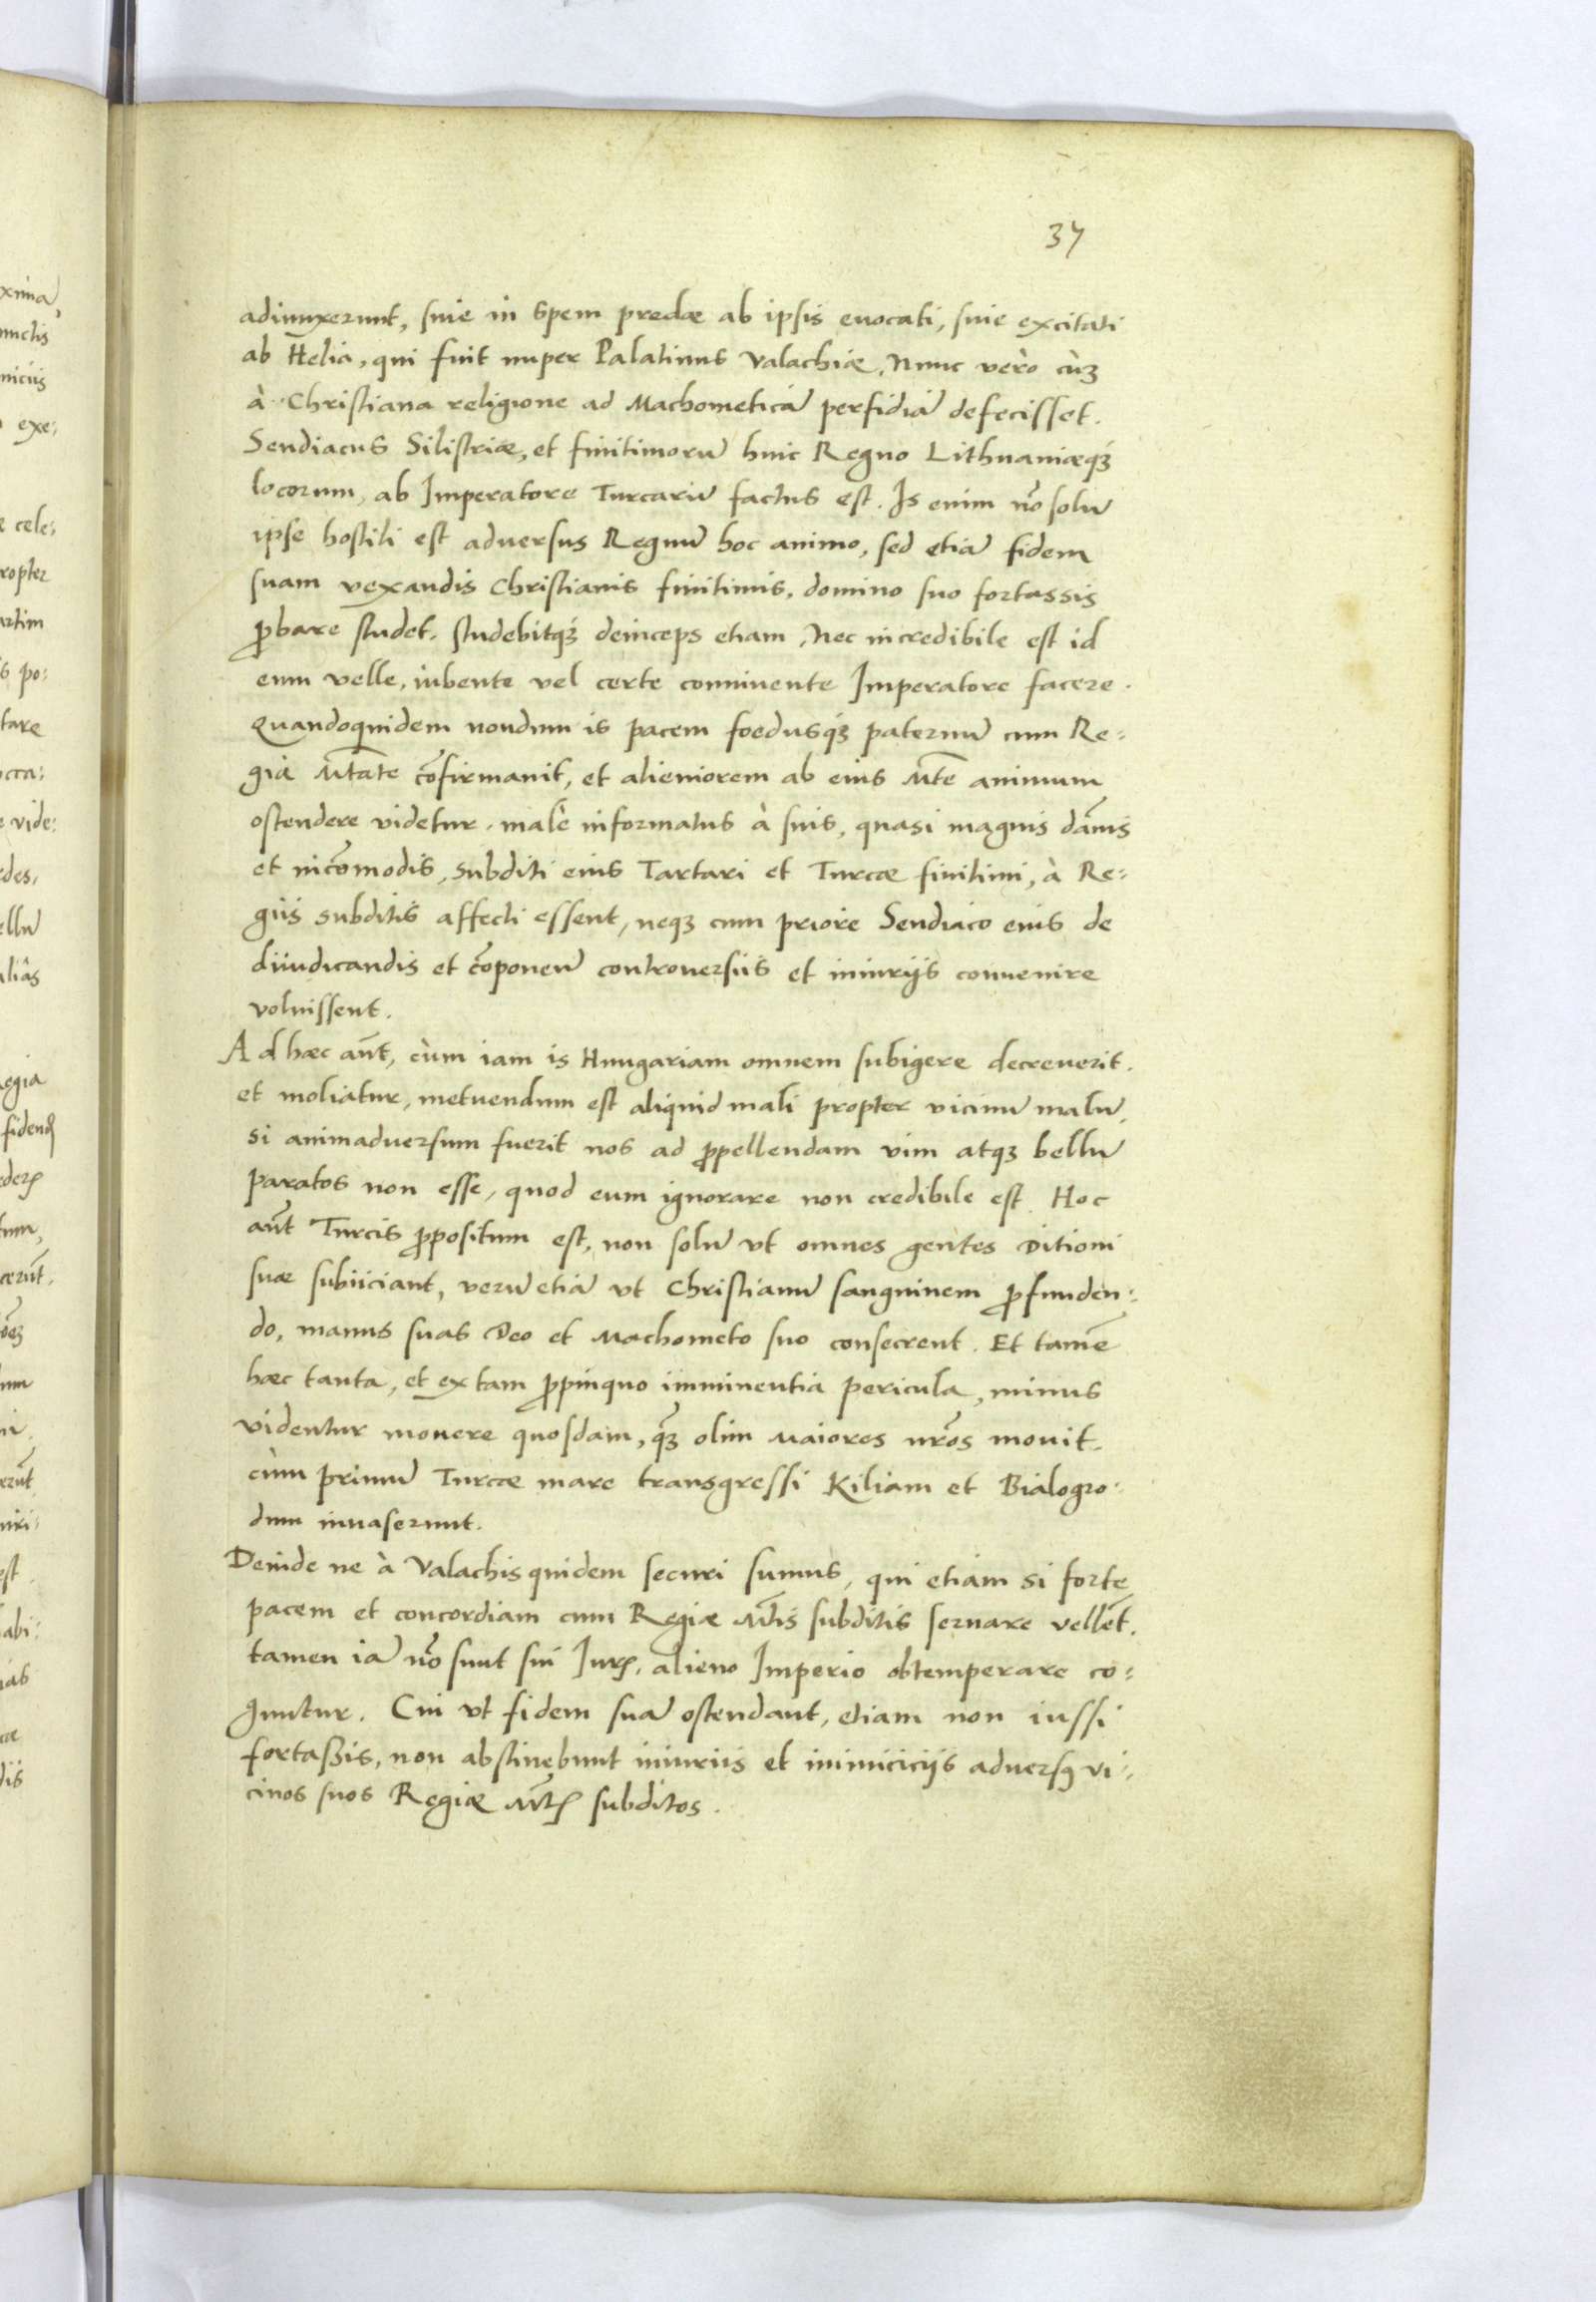 37
adiunxerunt, siue in spem predæ ab ipsis euocati, siue excitati
ab Helia, qui fuit nuper Palatinus Valachiæ, Nunc verò cùm
à Christiana religione ad Machometicā perfidiā defecisset.
Sendiacus Silistriæ, et finitimorū huic Regno Lithuaniæq́ꝫ
locorum, ab Imperatore Turcarū factus est. Is enim nō solū
ipse hostili est adversus Regnū hoc animo, sed etiā fidem
suam vexandis Christianis finitimis, domino suo fortassis
ꝓbare studet, studebitq́ꝫ deinceps etiam, Nec incredibile est id
eum velle, iubente vel certe conniuente Imperatore facere.
Quandoquidem nondum is pacem foedusq́ꝫ paternū cum Re:
gia Mtate cōfirmauit, et alieniorem ab eius Mte animum
ostendere videtur, malè informatus à suis, quasi magnis dānis
et incōmodis, subditi eius Tartari et Turcæ finitimi, à Re:
giis subditis affecti essent, neqꝫ cum priore Sendiaco eius de
diiudicandis et cōponen̄ controuersiis et iniurijs conuenire
voluissent.
Ad hæc aūt, cùm iam is Hungariam omnem subigere decreuerit.
et moliatur, metuendum est aliquid mali propter vicinū malū,
si animadversum fuerit nos ad ꝓpellendam vim atqꝫ bellū
paratos non esse, quod eum ignorare non credibile est. Hoc
aūt Turcis ꝓpositum est, non solū vt omnes gentes Ditioni
suæ subiiciant, verū etiā vt Christianū sanguinem ꝓfunden:
do, manus suas Deo et Machometo suo consecrent. Et tamē
hæc tanta, et ex tam ꝓpinquo imminentia pericula, minus
videntur mouere quosdam, q̄ꝫ olim Maiores nr̄os mouit,
cùm primū Turcæ mare transgressi Kiliam et Bialogro:
dum inuaserunt.
Deinde ne à Valachis quidem securi sumus, qui etiam si forte
pacem et concordiam cum Regiæ Mtis subditis seruare vellēt.
tamen iā nō sunt sui Iurꝭ, alieno Imperio obtemperare co:
guntur. Cui vt fidem suā ostendant, etiam non iussi
fortaßis, non abstinebunt iniuriis et inimiciciis adversꝰ vi:
cinos suos Regiæ Mtꝭ subditos.